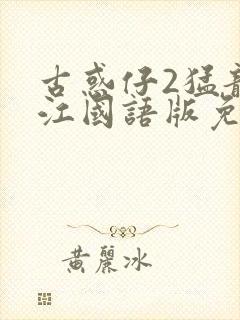 古惑仔2猛龍
江國語版免
黃麗冰